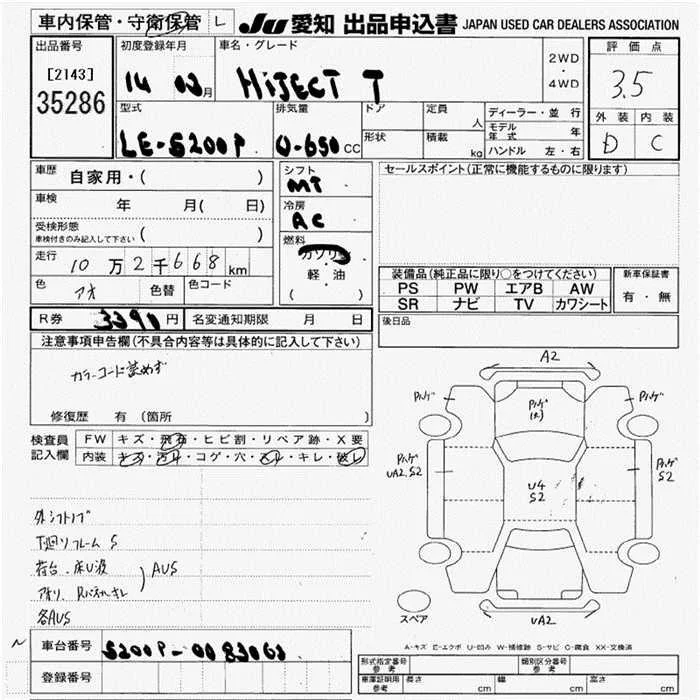 車内保管・守衛保管 L
JU 愛知 出品申込書 JAPAN USED CAR DEALERS ASSOCIATION
出品番号
[2143]
35286
初度登録年月
14 02月
車名・グレード
HIJECT T
2WD
・
4WD
評価点
3.5
外装 内装
D C
型式
LE-S200P
排気量
0-650 CC
ドア
形状
定員
人
積載
kg
ディーラー・並行
モデル年式 年
ハンドル 左・右
車歴
自家用・( )
車検
年 月( 日)
受検形態
車検付きのみ記入して下さい ( )
走行
10万2千668km
色
アオ
色替
色コード
シフト
MT
冷房
AC
燃料
ガソリン
軽・油
( )
セールスポイント(正常に機能するものに限ります)
装備品(純正品に限り○をつけてください)
PS PW エアB AW
SR ナビ TV カワシート
新車保証書
有・無
R券 3390円
名変通知期限 月 日
後日品
注意事項申告欄(不具合内容等は具体的に記入して下さい)
カラーコード読めず
修復歴 有 (箇所 )
検査員
記入欄
FW キズ・飛石・ヒビ割・リペア跡・X要
内装 キズ・汚れ・コゲ・穴・スレ・キレ・破レ
外シフトノブ
下廻リフレーム S
荷台.床U波
AUS
各AUS
A2
Pハゲ
Pハゲ
Pハゲ
(R)
Pハゲ
UA2.S2
U4
S2
Pハゲ
S2
UA2
スペア
A-キズ E-エクボ U-凹み W-補修跡 S-サビ C-腐食 XX-交換済
車台番号
S200P-0083063
登録番号
形式指定番号
参考
類別区分番号
参考
車庫証明用
参考
長さ cm
幅 cm
高さ cm